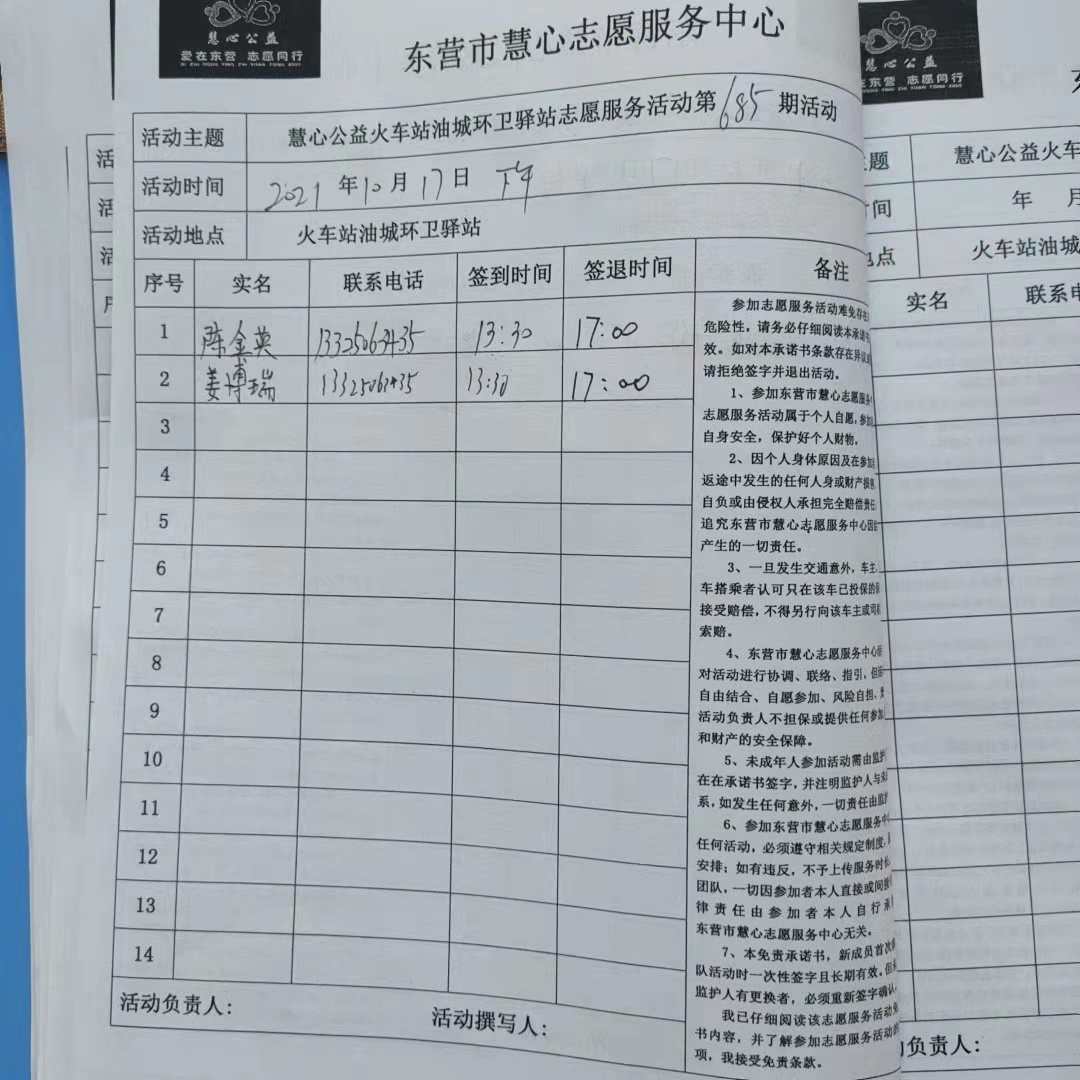 慧心公益
爱在东营 志愿同行
AI ZAI DONG YING ZHI YUAN TONG XING
东营市慧心志愿服务中心
活动主题 慧心公益火车站油城环卫驿站志愿服务活动第685期活动
活动时间 2021年10月17日 下午
活动地点 火车站油城环卫驿站
序号 实名 联系电话 签到时间 签退时间 备注
1 陈金英 13325063435 13:30 17:00
2 姜博瑞 13325063435 13:30 17:00
3
4
5
6
7
8
9
10
11
12
13
14
参加志愿服务活动难免存在
危险性，请务必仔细阅读本承诺书
效。如对本承诺书条款存在异议
请拒绝签字并退出活动。
1、参加东营市慧心志愿服务
志愿服务活动属于个人自愿，参加
自身安全，保护好个人财物。
2、因个人身体原因及在参加
返途中发生的任何人身或财产损害
自负或由侵权人承担完全赔偿责任
追究东营市慧心志愿服务中心因
产生的一切责任。
3、一旦发生交通意外，车主、
车搭乘者认可只在该车已投保的保
接受赔偿，不得另行向该车主或司机
索赔。
4、东营市慧心志愿服务中心
对活动进行协调、联络、指引，但
自由结合、自愿参加、风险自担、
活动负责人不担保或提供任何参加
和财产的安全保障。
5、未成年人参加活动需由监护
在在承诺书签字，并注明监护人与
系，如发生任何意外，一切责任由监护
6、参加东营市慧心志愿服务中
任何活动，必须遵守相关规定制度，
安排；如有违反，不予上传服务时长
团队，一切因参加者本人直接或间接
律责任由参加者本人自行承
东营市慧心志愿服务中心无关。
7、本免责承诺书，新成员首次
队活动时一次性签字且长期有效。但
监护人有更换者，必须重新签字确认。
我已仔细阅读该志愿服务活动免
书内容，并了解参加志愿服务活动的
项，我接受免责条款。
活动负责人： 活动撰写人：
慧心公益
在东营 志愿同行
主题 慧心公益火车
时间 年 月
地点 火车站油城
实名 联系电
负责人：